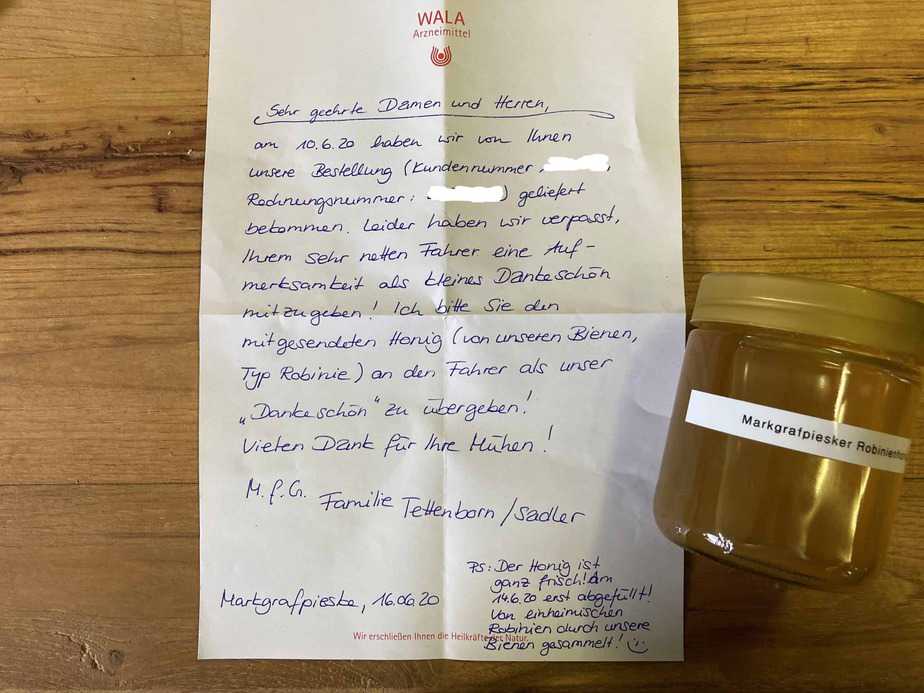 WALA
Arzneimittel
Sehr geehrte Damen und Herren,
am 10.6.20 haben wir von Ihnen
unsere Bestellung (Kundennummer:
Rechnungsnummer: ) geliefert
bekommen. Leider haben wir verpasst,
Ihrem sehr netten Fahrer eine Auf-
merksamkeit als kleines Dankeschön
mitzugeben! Ich bitte Sie den
mitgesendeten Honig (von unseren Bienen,
Typ Robinie) an den Fahrer als unser
„Dankeschön“ zu übergeben!
Vielen Dank für Ihre Mühen!
M.f.G. Familie Tettenborn/Sadler
Markgrafpieske, 16.06.20
PS: Der Honig ist
ganz frisch! Am
14.6.20 erst abgefüllt!
Von einheimischen
Robinien durch unsere
Bienen gesammelt!
Wir erschließen Ihnen die Heilkräfte der Natur.
Markgrafpiesker Robinienhon